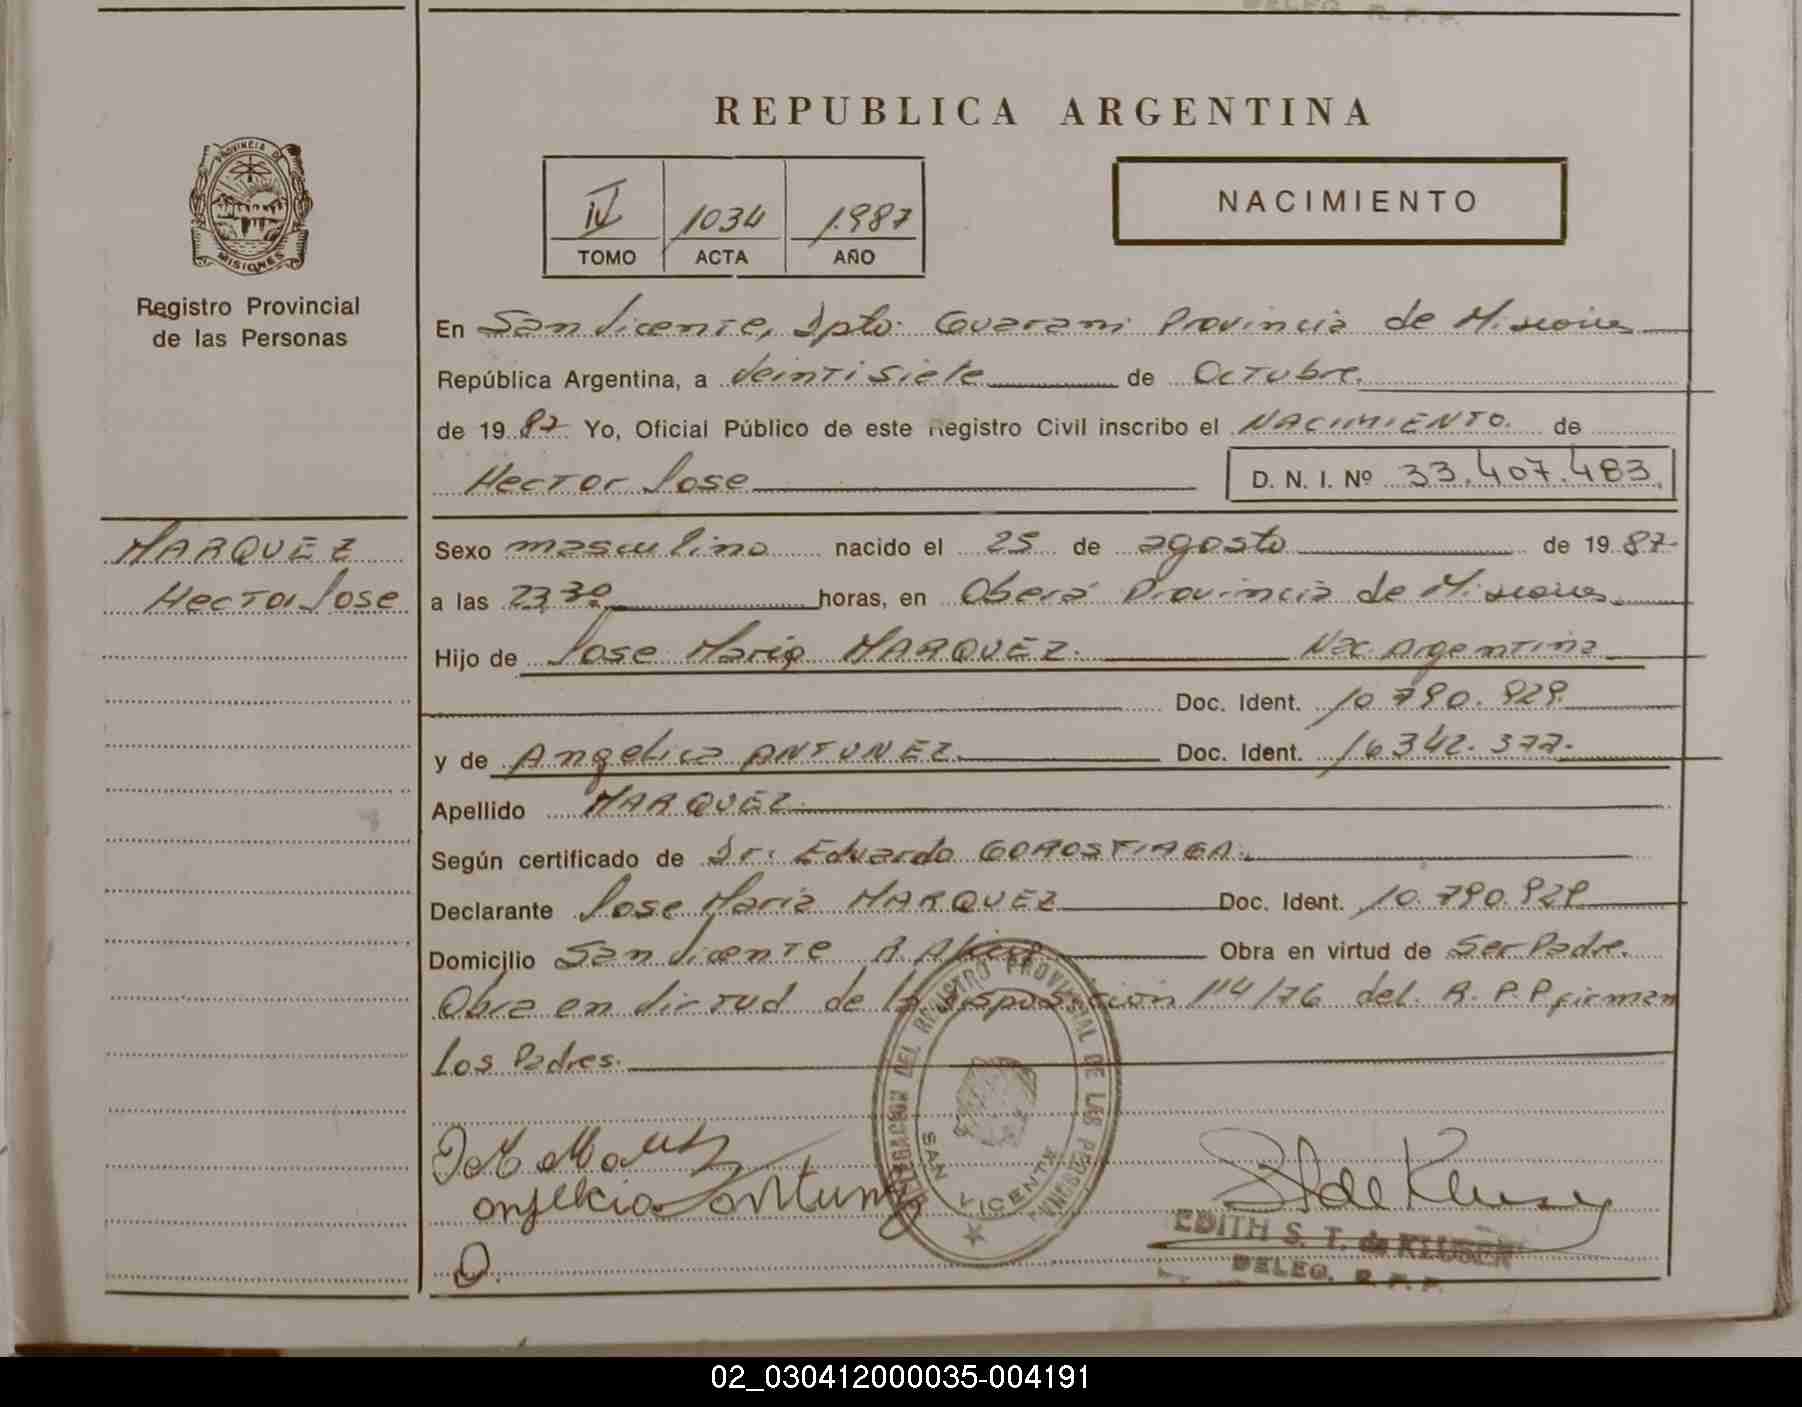 DELEG. R. P. P.
REPUBLICA ARGENTINA
PROVINCIA D
MISIONES
Registro Provincial
de las Personas
IV 1034 1.987
TOMO ACTA AÑO
NACIMIENTO
En San Vicente, Dpto. Guarani Provincia de Misiones
República Argentina, a Veintisiete de Octubre.
de 1987 Yo, Oficial Público de este Registro Civil inscribo el NACIMIENTO. de
Hector Jose D. N. I. Nº 33.407.483.
MARQUEZ
Hector Jose
Sexo masculino nacido el 25 de agosto de 1987.
a las 23,30 horas, en Oberá Provincia de Misiones.
Hijo de Jose Maria MARQUEZ. Nac. Argentina
Doc. Ident. 10.790.929.
y de Angelica ANTUNEZ. Doc. Ident. 16.342.377.
Apellido MARQUEZ.
Según certificado de Dr. Eduardo GOROSTIAGA.
Declarante Jose Maria MARQUEZ Doc. Ident. 10.790.929
Domicilio San Vicente Obra en virtud de Ser Padre.
Obra en virtud de la disposición 114/76 del. R.P.P firman
Los Padres.
DEL REGISTRO PROVINCIAL DE LAS PERSONAS
SAN VICENTE
EDITH S. T. de KLUSEN
DELEG. R. P. P.
02_030412000035-004191